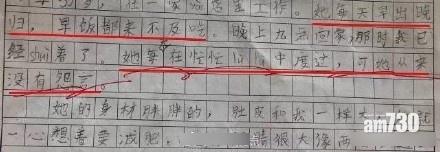 在一家 工作。她每天早出晚
归，早饭都来不及吃。晚上九点回家，那时我已
经shuì着了。她每在忙忙 中度过，可她从来
没有怨言。
她的身材胖胖的，肚皮和我一样大 就
一心想着要减肥， 眼睛很大像两
am730